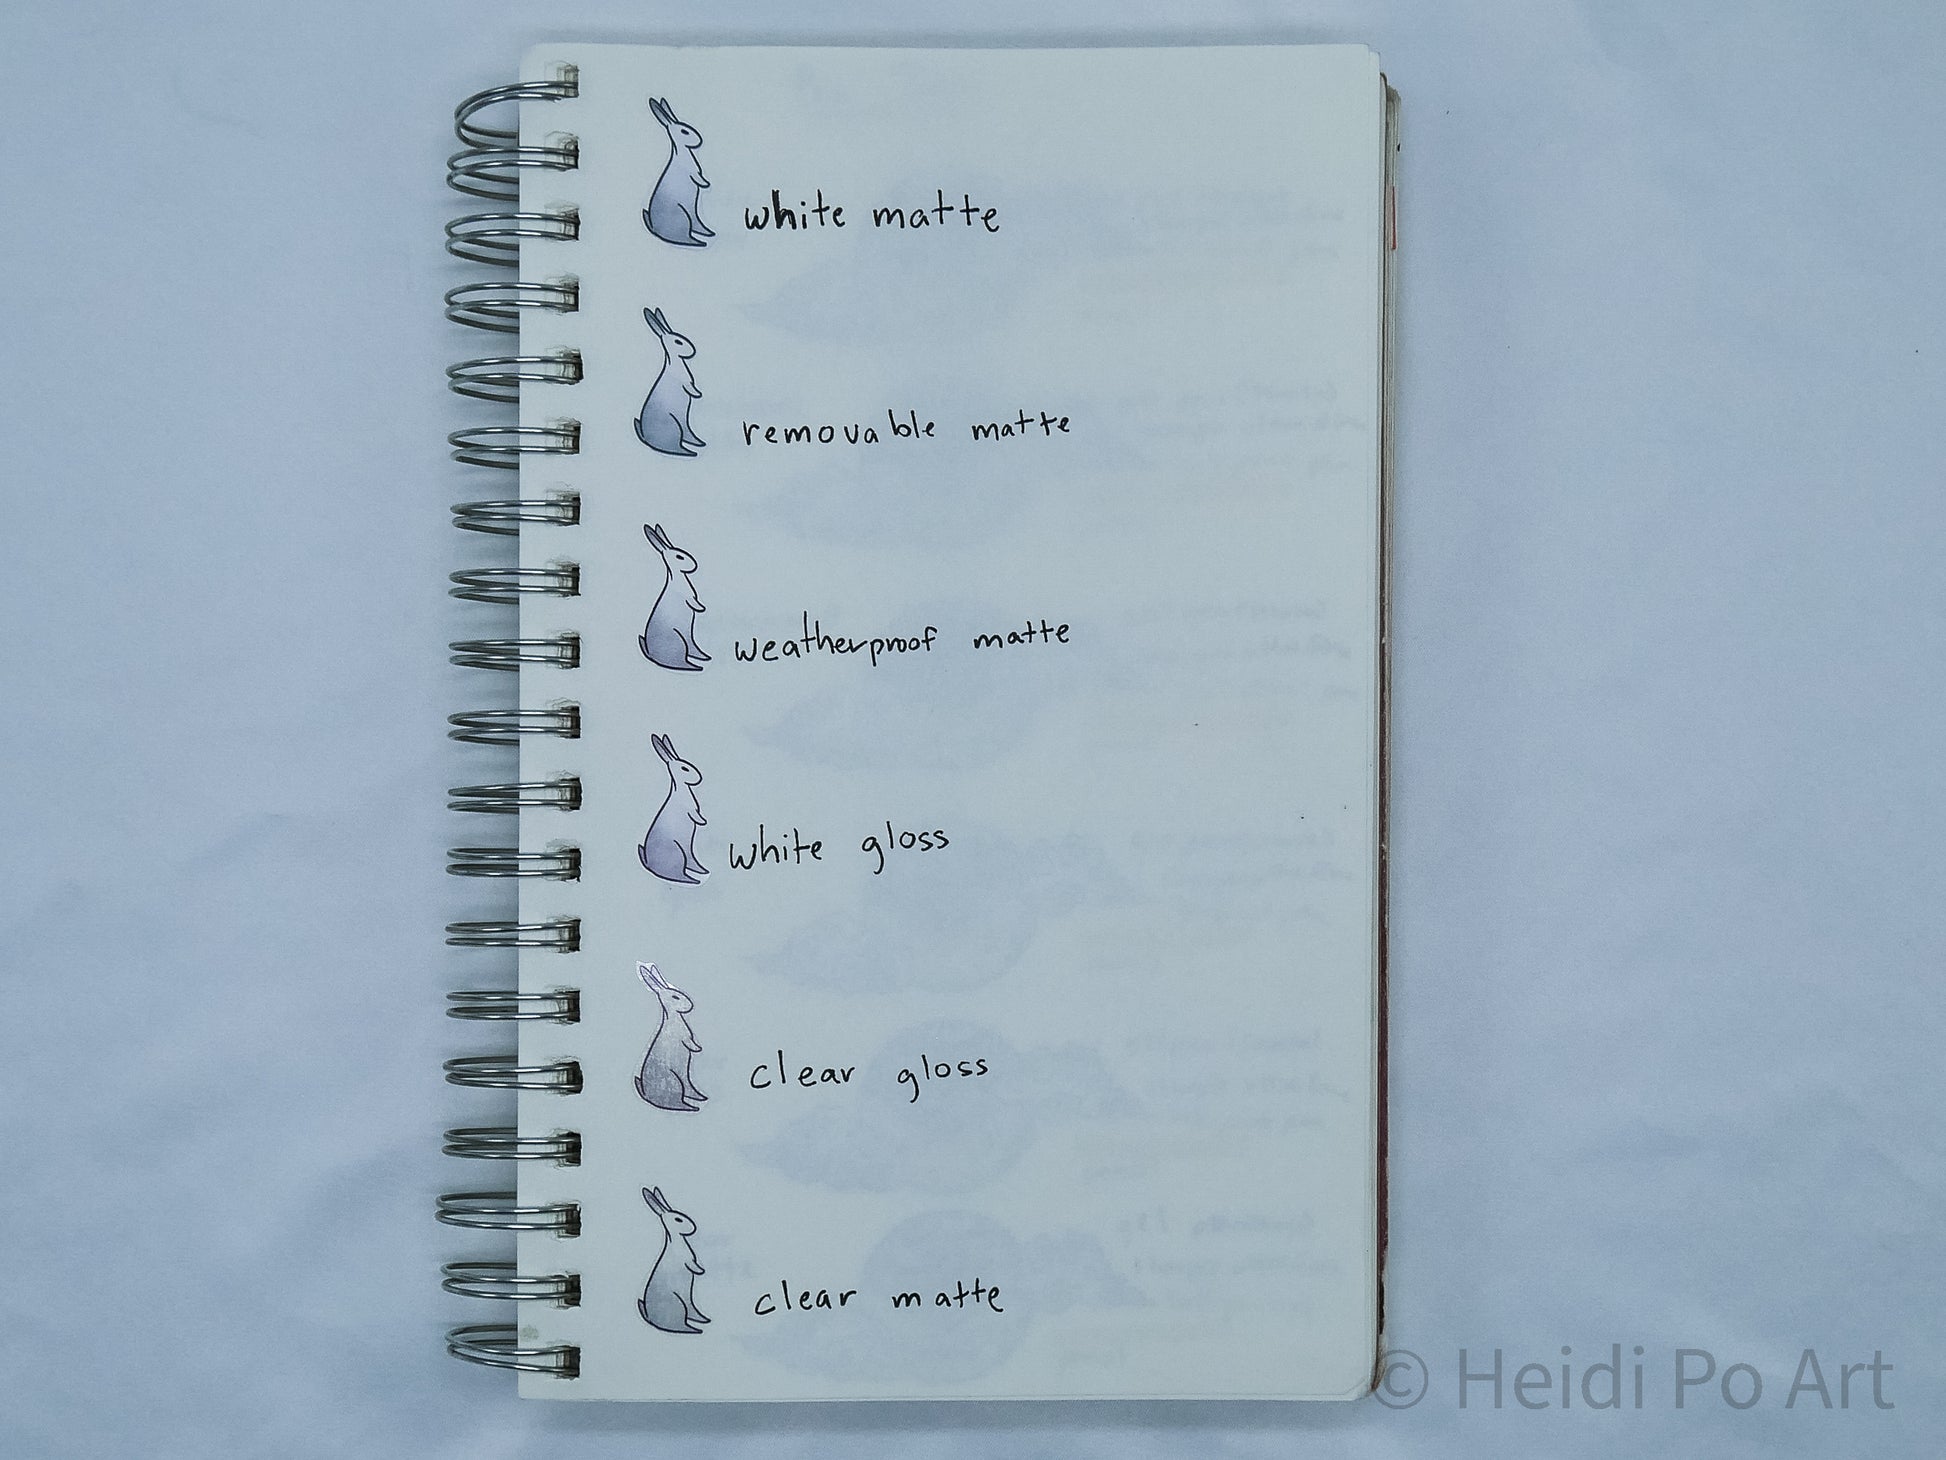 white matte
removable matte
weatherproof matte
white gloss
clear gloss
clear matte
© Heidi Po Art